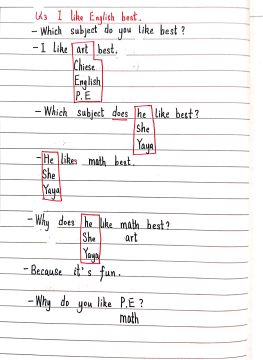 U3 I like English best.
- Which subject do you like best?
- I like art best.
Chiese
English
P.E
- Which subject does he like best?
She
Yaya
- He likes math best.
She
Yaya
- Why does he like math best?
She art
Yaya
- Because it's fun.
- Why do you like P.E?
math